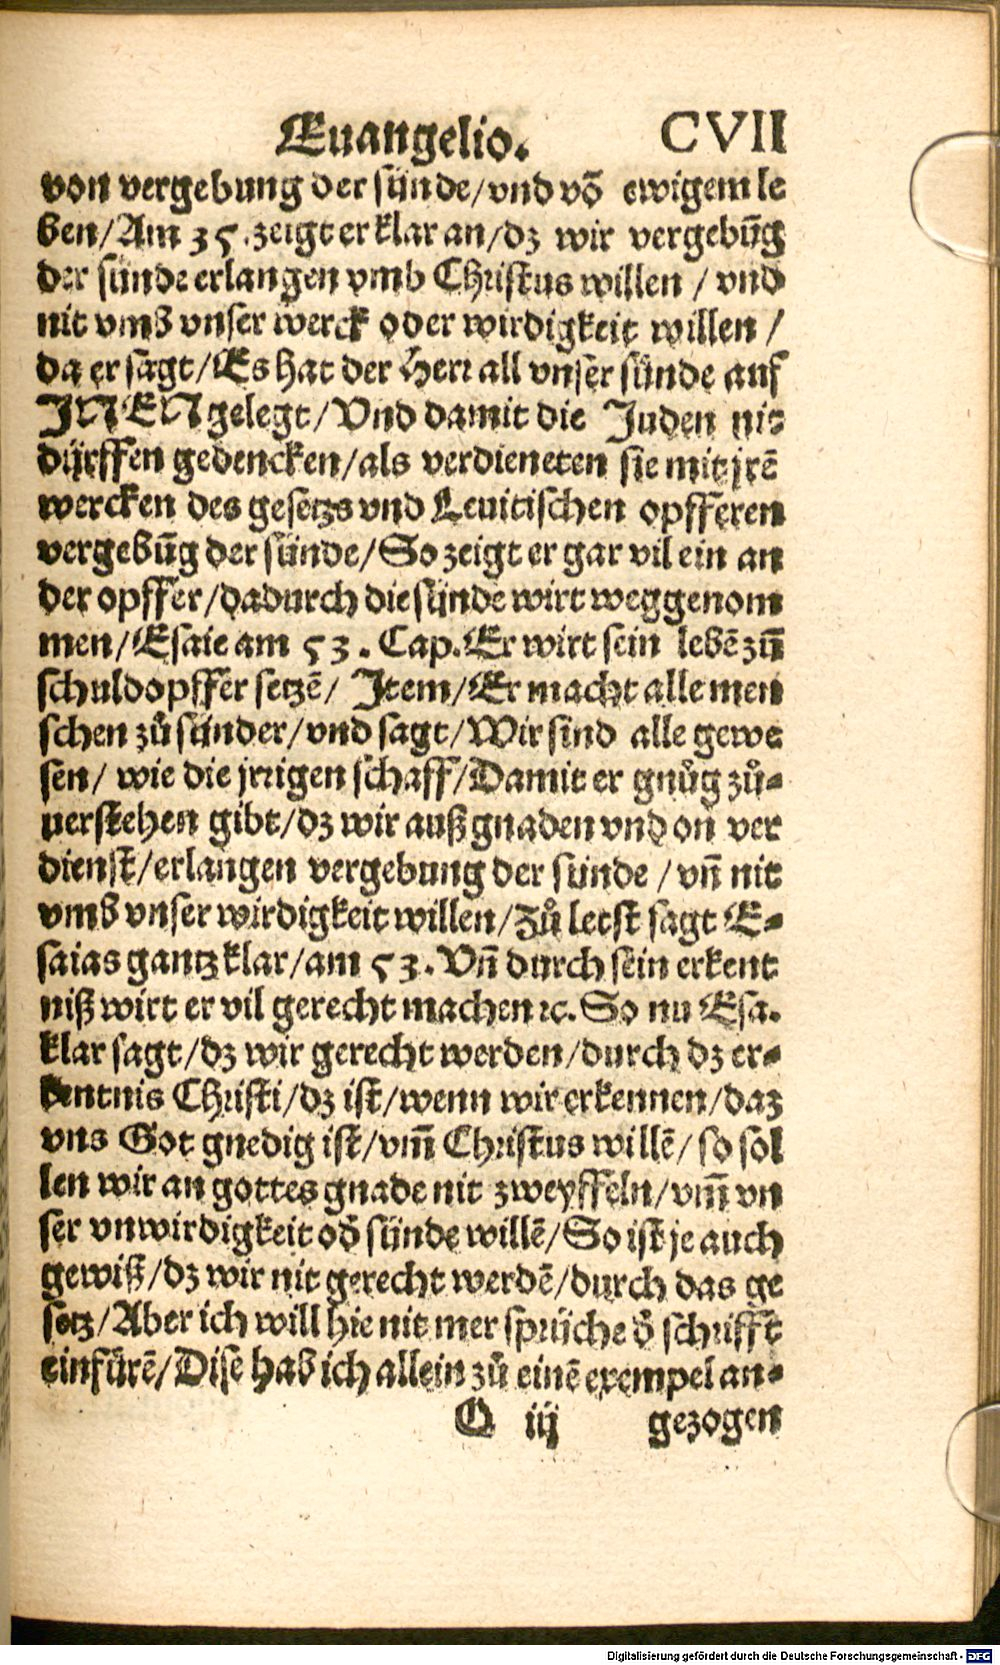 Euangelio. CVII
von vergebung der sünde/vnd võ ewigem le
ben/Am 35.zeigt er klar an/dz wir vergebũg
der sünde erlangen vmb Christus willen / vnd
nit vmb vnser werck oder wirdigkeit willen /
da er sagt/Es hat der Herr all vnser sünde auf
JNEN gelegt/Vnd damit die Juden nit
dürffen gedencken/als verdieneten sie mit jrẽ
wercken des gesetzs vnd Leuitischen opfferen
vergebũg der sünde/So zeigt er gar vil ein an
der opffer/dadurch die sünde wirt weggenom
men/Esaie am 53. Cap.Er wirt sein lebẽ zũ
schuldopffer setzẽ/ Jtem/Er macht alle men
schen zů sünder/vnd sagt/Wir sind alle gewe
sen/ wie die jrrigen schaff/Damit er gnůg zů-
uerstehen gibt/dz wir auß gnaden vnd on ver
dienst/erlangen vergebung der sünde / vñ nit
vmb vnser wirdigkeit willen/Zů letst sagt E-
saias gantz klar/am 53.Vñ durch sein erkent
niß wirt er vil gerecht machen ꝛc.So nu Esa.
klar sagt/dz wir gerecht werden/durch dz er-
kentnis Christi/dz ist/wenn wir erkennen/daz
vns Got gnedig ist/vm̃ Christus willẽ/so sol
len wir an gottes gnade nit zweyffeln/vm̃ vn
ser vnwirdigkeit od̕ sünde willẽ/So ist je auch
gewiß/dz wir nit gerecht werdẽ/durch das ge
setz/Aber ich will hie nit mer sprüche d̕ schrifft
einfürẽ/Dise hab ich allein zů einẽ exempel an-
O iij gezogen
Digitalisierung gefördert durch die Deutsche Forschungsgemeinschaft - DFG